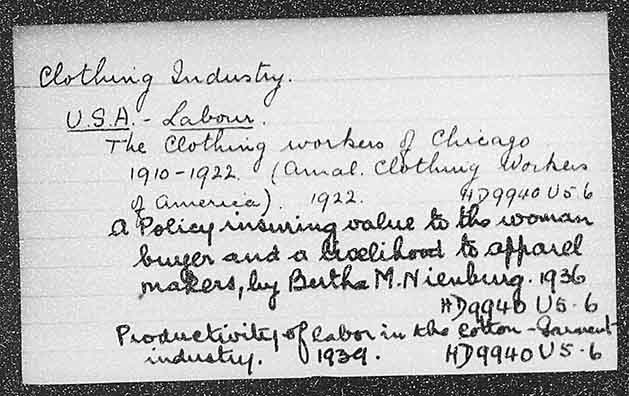 Clothing Industry.
U.S.A. - Labour.
The Clothing workers of Chicago
1910-1922. (Amal. Clothing Workers
of America). 1922. HD9940 U5.6
A Policy insuring value to the woman
buyer and a livelihood to apparel
makers, by Bertha M. Nienburg. 1936
HD9940 U5.6
Productivity of labor in the Cotton-Garment
industry. 1939. HD9940 U5.6